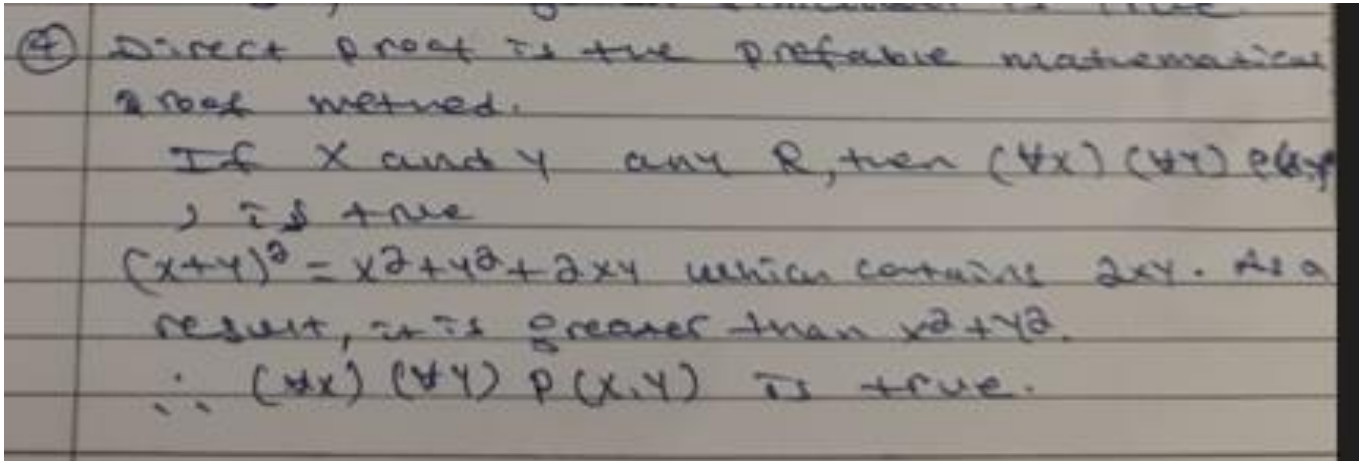 ④ Direct proof is the prefable mathematical
proof method.
If X and Y any R, then (∀x) (∀Y) P(x,y)
, is true
(x+y)² = x²+y²+2xy which contains 2xy. As a
result, it is greater than x²+y².
∴ (∀x) (∀Y) P(X,Y) is true.